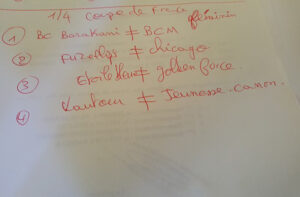 1/4 Coupe de France féminin
① BC Barakani ≠ BCM
② Fuzellys ≠ chicago
③ Etoile bleue ≠ golden force
④ ≠ Jeunesse-canon.